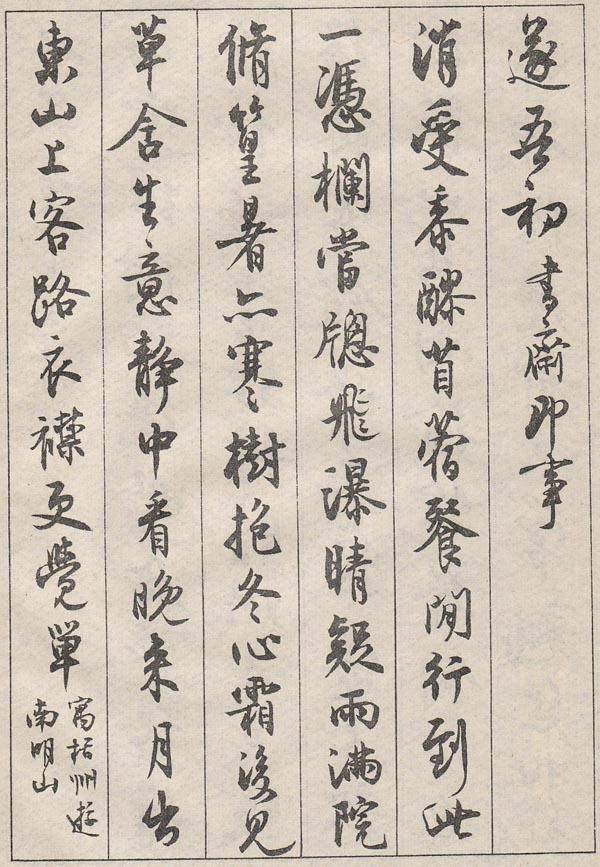 遂吾初書齋即事
消受黍醪苜蓿餐閒行到此
一憑欄當牕飛瀑晴疑雨滿院
脩篁暑亦寒樹抱冬心霜後見
草含生意靜中看晚来月出
東山上客路衣襟更覺單
寓栝州遊
南明山